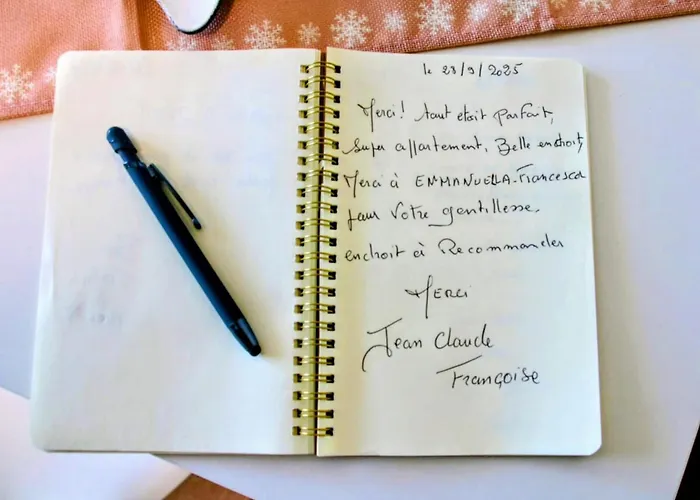 le 23/9/2025
Merci! tout etait parfait,
Super appartement, Belle endroit,
Merci à EMMANUELLA-Francesca
pour Votre gentillesse,
endroit à Recommander
Merci
Jean Claude
Françoise